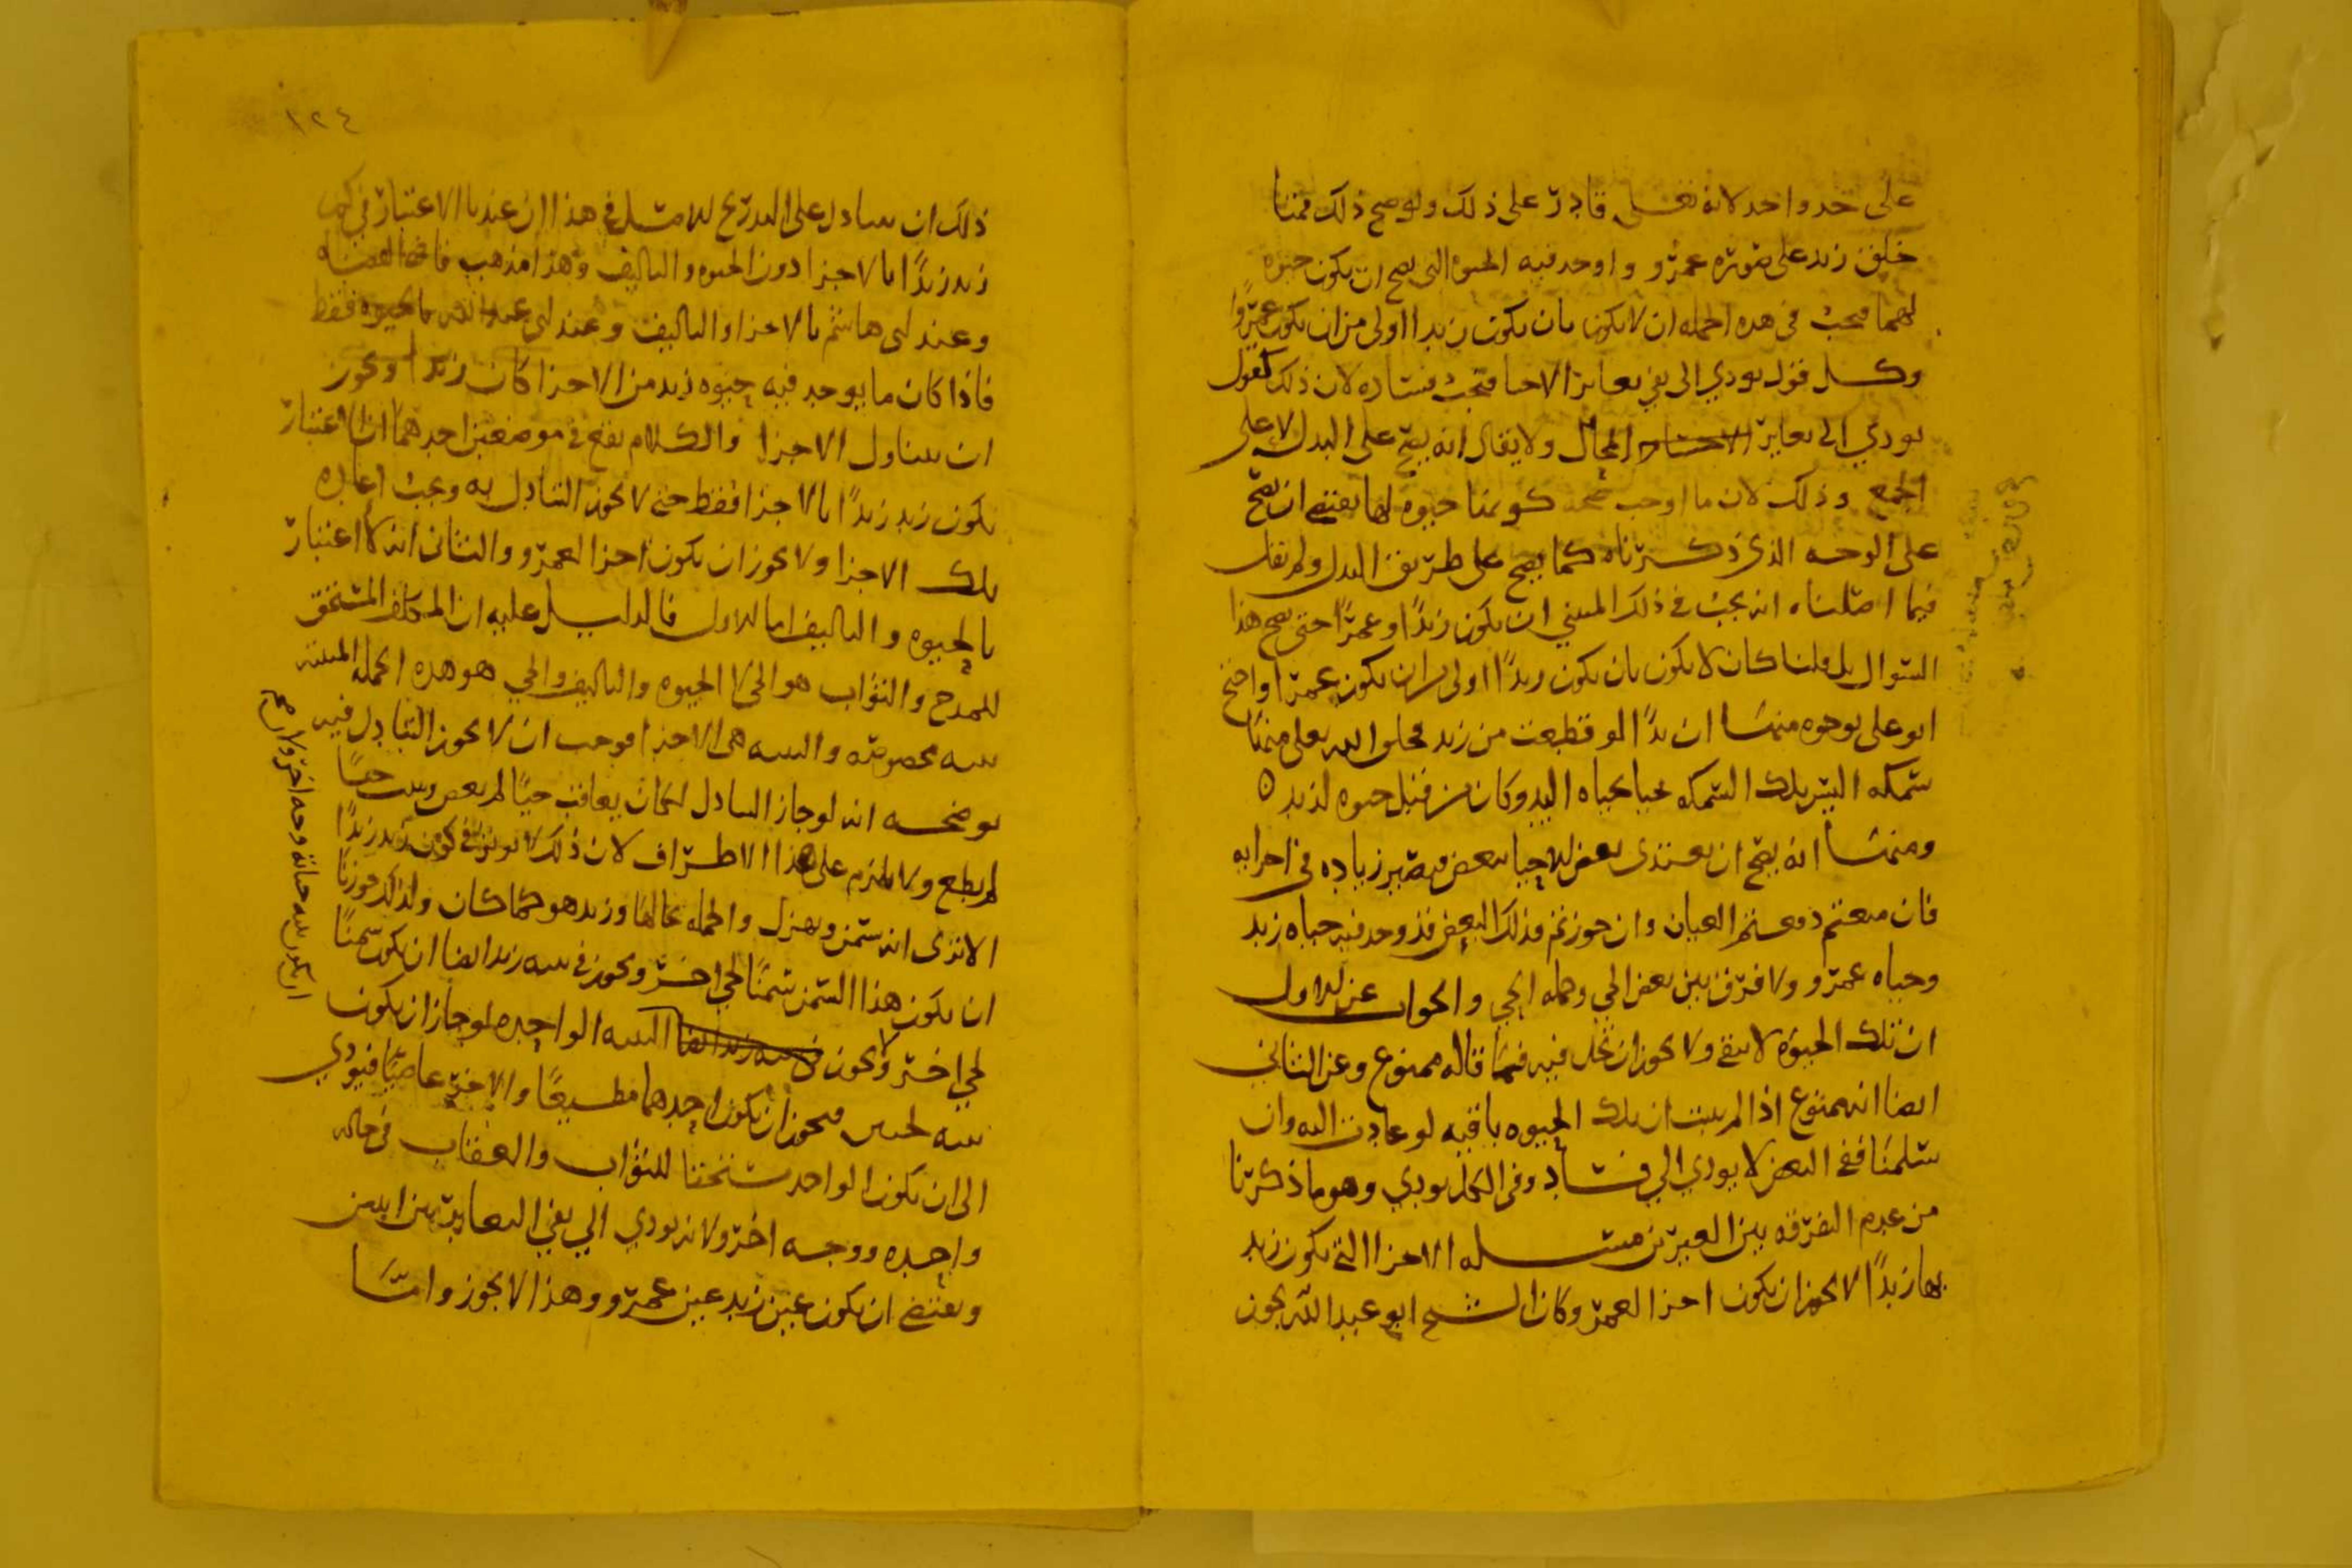 على حد واحد لانه تعلى قادر على ذلك ولو صح ذلك فمتا
خلق زيد على صورة عمرو واوجد فيه الحيوه التى يصح ان يكون حيوه
لهما فيجب فى هذه الجمله ان لا يكون بان يكون زيدا اولى من ان يكون عمروا
وكل قول يودي الى نفي تعاير الاحيا فيجب فساده لان ذلك كقول
يودي الى تعاير المحال ولا يقال انه يصح على البدل لا على
الجمع وذلك لان ما اوجب صحه كونها حيوه لهما يقتضي ان يصح
على الوجه الذي ذكرناه كما يصح على طريق البدل ولم نقل
فيما اصلناه انه يجب فى ذلك المبني ان يكون زيدًا وعمرًا حتى يصح هذا
السوال بل قلنا كان لا يكون بان يكون زيدًا اولى من ان يكون عمرا واحتج
ابو على بوجوه منها ان يدًا لو قطعت من زيد فخلق الله تعلى منها
سمكه اليس تلك السمكه تحيا بحياه اليد وكان من قبل حيوه لزيد ه
ومنها انه يصح ان يغتذى بعض الاحيا ببعض فيصير زياده فى اجزايه
فان منعتم دفعتم العيان وان جوزتم فذلك البعض قد وجد فيه حياه زيد
وحياه عمرو ولا فرق بين بعض الحي وجمله الحي والجواب عن الاول
ان تلك الحيوه لا تبقى ولا يجوز ان تحل فيه فما قاله ممنوع وعن الثاني
ايضا انه ممنوع اذا لم يثبت ان تلك الحيوه باقيه لو عادت اليه وان
سلمنا ففى البعض لا يودي الي فساد وفى الكل يودي وهو ما ذكرنا
من عدم التفرقه بين الغيرين مسله الاجزا التي يكون زيد
بها زيدًا لا يجوز ان يكون اجزا لعمرو وكان الشيخ ابو عبد الله يجوز
١٢٤
ذلك ان يتبادل على التدريج الامثل فى هذا ان عندنا الاعتبار فى كون
زيد زيدًا بالاجزا دون الحيوه والتاليف وهذا مذهب قاضي القضاه
وعند ابى هاشم بالاجزا والتاليف وعند ابى عبد الله بالحيوه فقط
فاذا كان ما يوجد فيه حيوه زيد من الاجزا كان زيدا ويجوز
ان يتناول الاجزا والكلام يقع في موضعين احدهما ان الاعتبار
بكون زيد زيدًا بالاجزا فقط حتى لا يجوز التبادل به ويجب اعاده
تلك الاجزا ولا يجوز ان يكون اجزا لعمرو والثانى انه لا اعتبار
بالحيوه والتاليف اما الاول فالدليل عليه ان المكلف المستحق
للمدح والثواب هو الحي لا الحيوه والتاليف والحي هو هذه الجمله المبنيه
بنيه مخصوصه والبنيه هى الاجزا فوجب ان لا يجوز التبادل فيه
يوضحه انه لو جاز التبادل لكان يعاقب حيًا لم يعص ويثيب حيًا
لم يطع ولا يلزم على هذا الاطراف لان ذلك لا يوثر في كون زيد زيدًا
الا ترى انه يسمن ويهزل والجمله بحالها وزيد هو كما كان ولذلك جوزنا
ان يكون هذا السمن سمنًا لحي اخر ويجوز فى بنيه زيد ايضا ان يكون سمنًا
لحي اخر ولا يجوز فى بنيه زيد ايضا البنيه الواحده لو جاز ان يكون
بنيه لحيين فيجوز ان يكون احدهما مطيعًا والاخر عاصيًا فيودي
الى ان يكون الواحد مستحقا للثواب والعقاب فى حاله
واحده ووجه اخر ولانه يودي الي نفي التغاير بين اثنين
ويقتضي ان يكون عين زيد عين عمرو وهذا لا يجوز واما